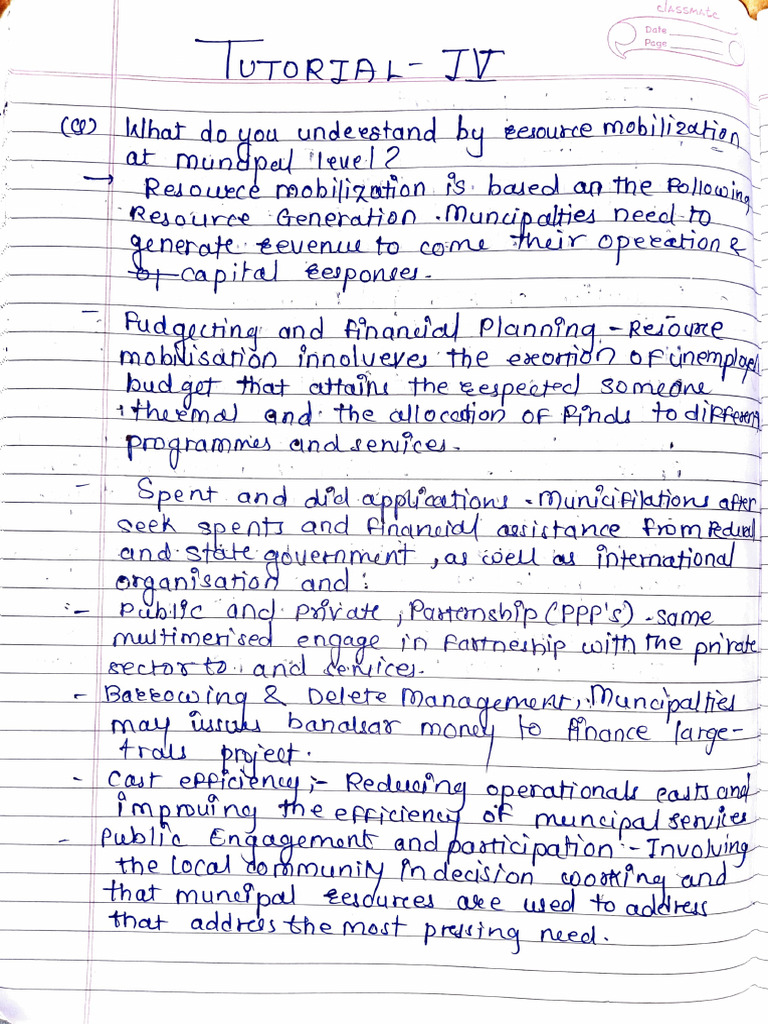 classmate
Date
Page
TUTORIAL-IV
(Q) What do you understand by resource mobilization
at muncipal level?
→ Resource mobilization is based on the following
Resource Generation. Muncipalties need to
generate revenue to come their operation &
of capital responses.
- Fudgecting and financial Planning - Resource
mobilisation innolueves the exortion of unemployed
budget that attains the respected someone
thermal and the allocation of Finds to different
programmes and services.
- Spent and did applications. Municifilations after
seek spents and financial assistance from Fedural
and state government, as well as international
organisation and:
:- Public and private, Parternship (PPP's) - same
multimerised engage in Fartneship with the private
sector to and services.
- Barrowing & Delete Management, Muncipalties
may issues bandsar money to finance large-
trals project.
- Cast efficiency;- Reducing operationals casts and
improving the efficiency of muncipal services
- Public Engagement and participation:- Involving
the local community in decision woorking and
that muncipal resources are used to address
that address the most pressing need.